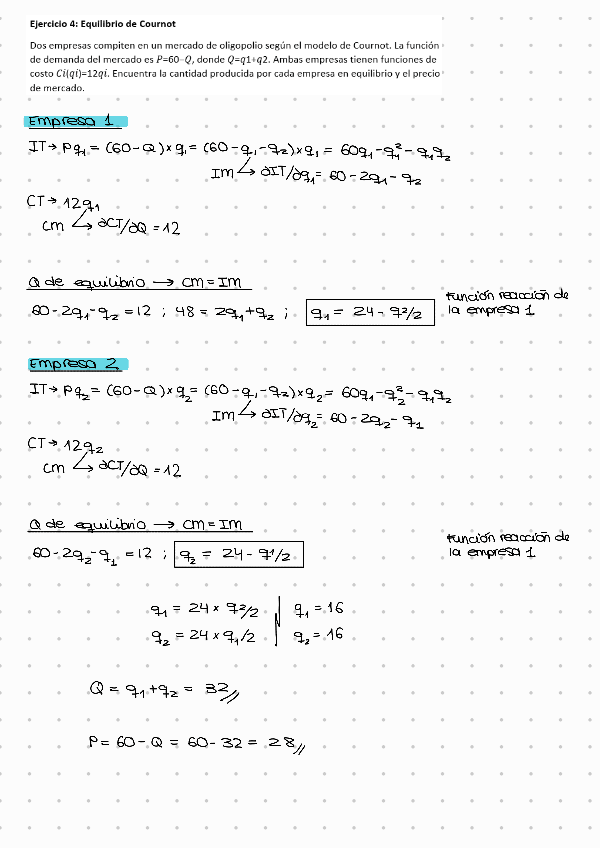 Ejercicio 4: Equilibrio de Cournot
Dos empresas compiten en un mercado de oligopolio según el modelo de Cournot. La función
de demanda del mercado es P=60-Q, donde Q=q1+q2. Ambas empresas tienen funciones de
costo Ci(qi)=12qi. Encuentra la cantidad producida por cada empresa en equilibrio y el precio
de mercado.
Empresa 1
IT → Pq₁ = (60-Q)×q₁ = (60-q₁-q₂)×q₁ = 60q₁-q₁²-q₁q₂
Im ↳ ∂IT/∂q₁ = 60-2q₁-q₂
CT → 12q₁
Cm ↳ ∂CT/∂Q = 12
Q de equilibrio → Cm = Im
60-2q₁-q₂ = 12 ; 48 = 2q₁+q₂ ; q₁ = 24 - q₂/2
Función reacción de
la empresa 1
Empresa 2
IT → Pq₂ = (60-Q)×q₂ = (60-q₁-q₂)×q₂ = 60q₁-q₂²-q₁q₂
Im ↳ ∂IT/∂q₂ = 60-2q₂-q₁
CT → 12q₂
Cm ↳ ∂CT/∂Q = 12
Q de equilibrio → Cm = Im
60-2q₂-q₁ = 12 ; q₂ = 24 - q₁/2
Función reacción de
la empresa 1
q₁ = 24 × q₂/2 | q₁ = 16
q₂ = 24 × q₁/2 | q₂ = 16
Q = q₁+q₂ = 32//
P = 60-Q = 60-32 = 28//